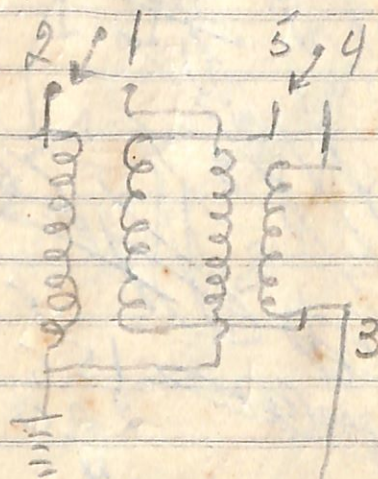 2 1 5 4
3